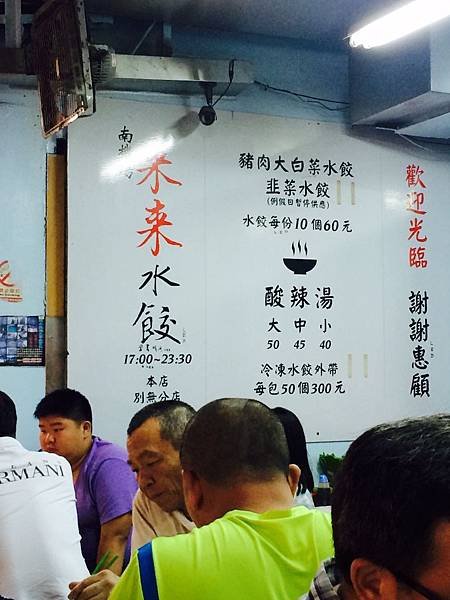 南機場
未来
水餃
17:00~23:30
本店
別無分店
豬肉大白菜水餃
韭菜水餃
(例假日暫停供應)
水餃每份10個60元
酸辣湯
大中小
50 45 40
冷凍水餃外帶
每包50個300元
歡迎光臨
謝謝惠顧
RMANI